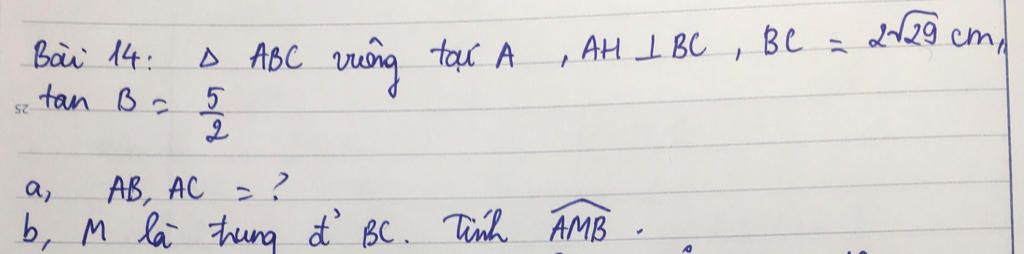 Bài 14: Δ ABC vuông tại A, AH ⊥ BC, BC = 2√29 cm,
tan B = 5/2
a, AB, AC = ?
b, M là trung đ' BC. Tính \widehat{AMB}.